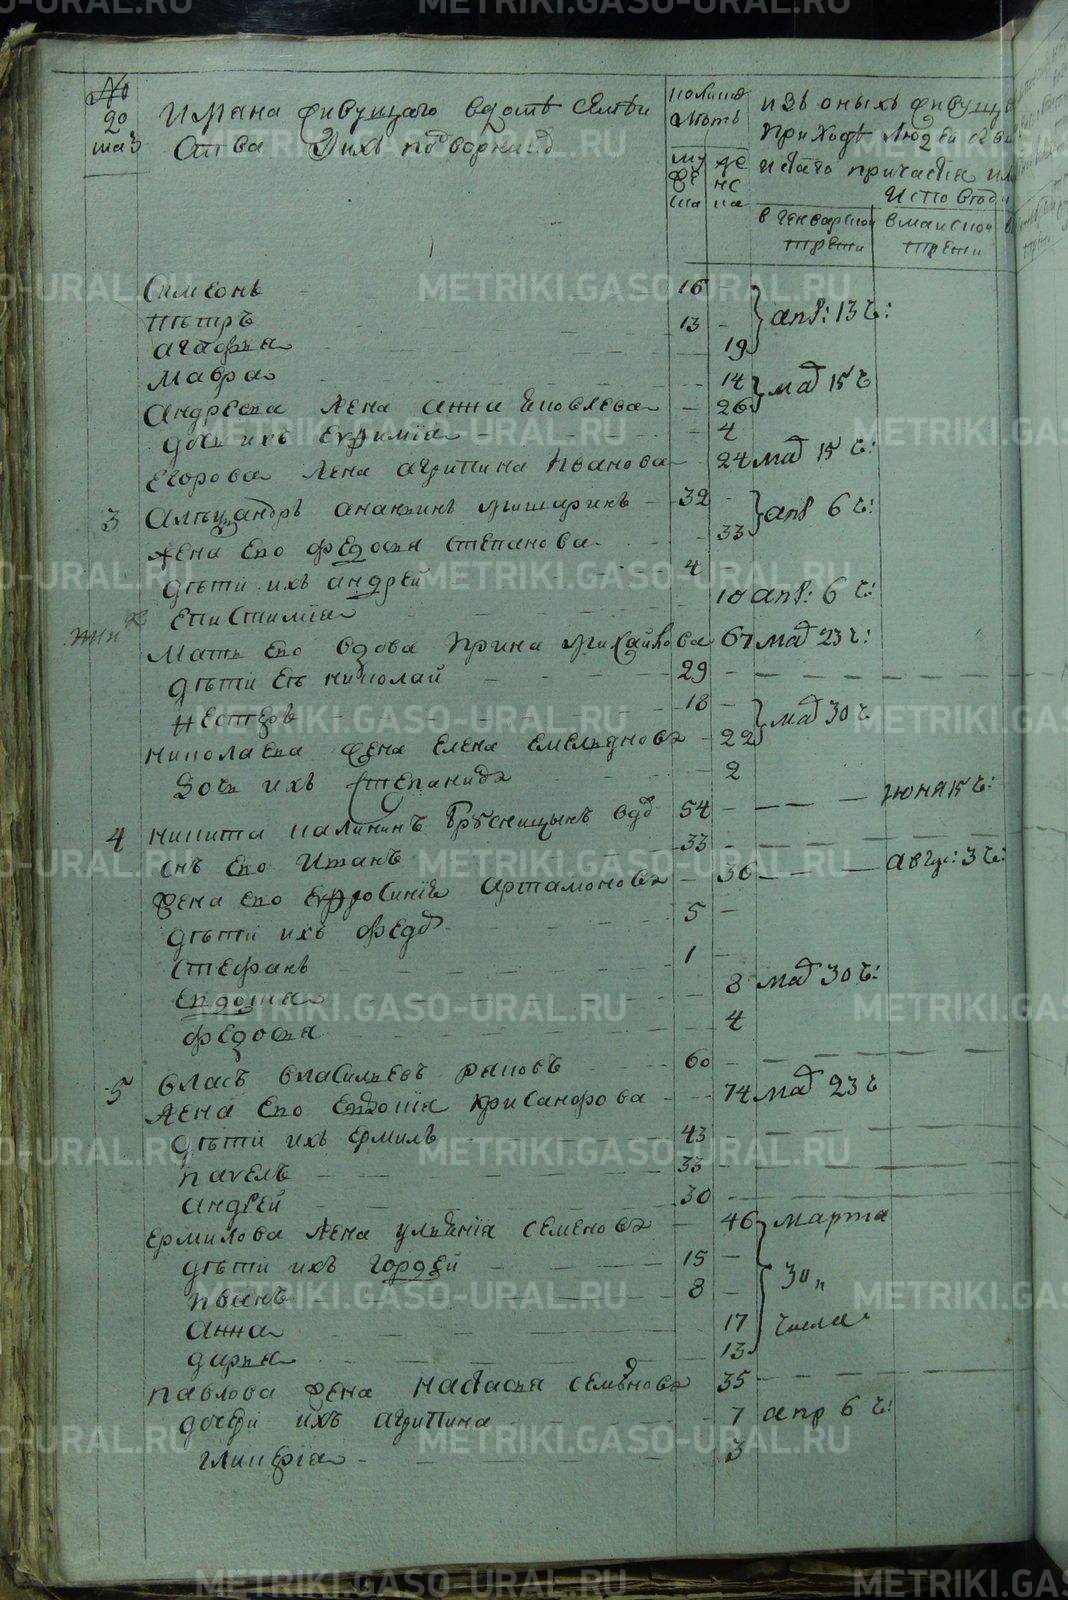 № домаѣ
имяна живущаго вдомѣ семѣи
Отва ихъ подворнаѣ
колико лѣтъ
муже ска
же нска
изъ оныхъ живущ
приходѣ людей
истаго причастия
Исповѣди
в генварской трети
в маиской трети
Симеонъ 16
петръ 13 } апр: 13 ч:
агафья 19
мавра 14 } маѣ 15 ч
Андреева жена анна яковлева 26
дочь ихъ еѵфимїа 4
Егорова жена агрипина иванова 24 маѣ 15 ч:
3 Александръ ананьинъ мишаринъ 32 } апр 6 ч:
жена Ево федосья степанова 33
дѣти ихъ андрей 4
епистимїа 10 апр: 6 ч:
мать Ево вдова ирина михайлова 67 маѣ 23 ч:
дѣти Еѣ николай 29
нестеръ 18 } маѣ 30 ч
николаева жена елена емельяновa 22
дочь ихъ степанида 2
4 никита калининъ вдо 54 июня 15 ч:
снъ Ево иванъ 33
жена Ево еѵфросинїя артамонова 36 авгус: 3 ч:
дѣти ихъ федо 5
стефанъ 1
евдокиа 8 маѣ 30 ч:
федосья 4
5 власъ васильевъ рыковъ 60
жена Ево евдокия крисанфова 74 маѣ 23 ч
дѣти ихъ ермилъ 43
павелъ 33
андрей 30
ермилова жена ульянїя семенова 46 } марта
дѣти ихъ гордей 15
иванъ 8 30„
анна 17 числа
дарья 13
павлова жена настасья семенова 35
дочери ихъ агрипина 7 апр 6 ч:
гликерїа 3
METRIKI.GASO-URAL.RU